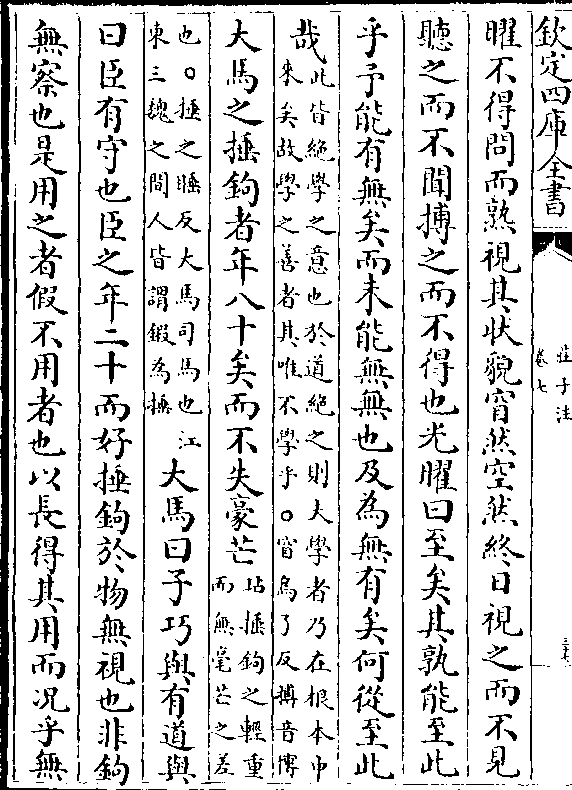 欽定四庫全書
莊子注
卷七
曜不得問而熟視其狀貌窅然空然終日視之而不見
聽之而不聞搏之而不得也光曜曰至矣其孰能至此
乎予能有無矣而未能無無也及為無有矣何從至此
哉
此皆絶學之意也於道絶之則夫學者乃在根本中
來矣故學之善者其唯不學乎○窅烏了反搏音博
大馬之捶鉤者年八十矣而不失豪芒
玷捶鉤之輕重
而無毫芒之差
也○捶之睡反大馬司馬也江
東三魏之間人皆謂鍜為捶
大馬曰子巧與有道與
曰臣有守也臣之年二十而好捶鉤於物無視也非鉤
無察也是用之者假不用者也以長得其用而況乎無